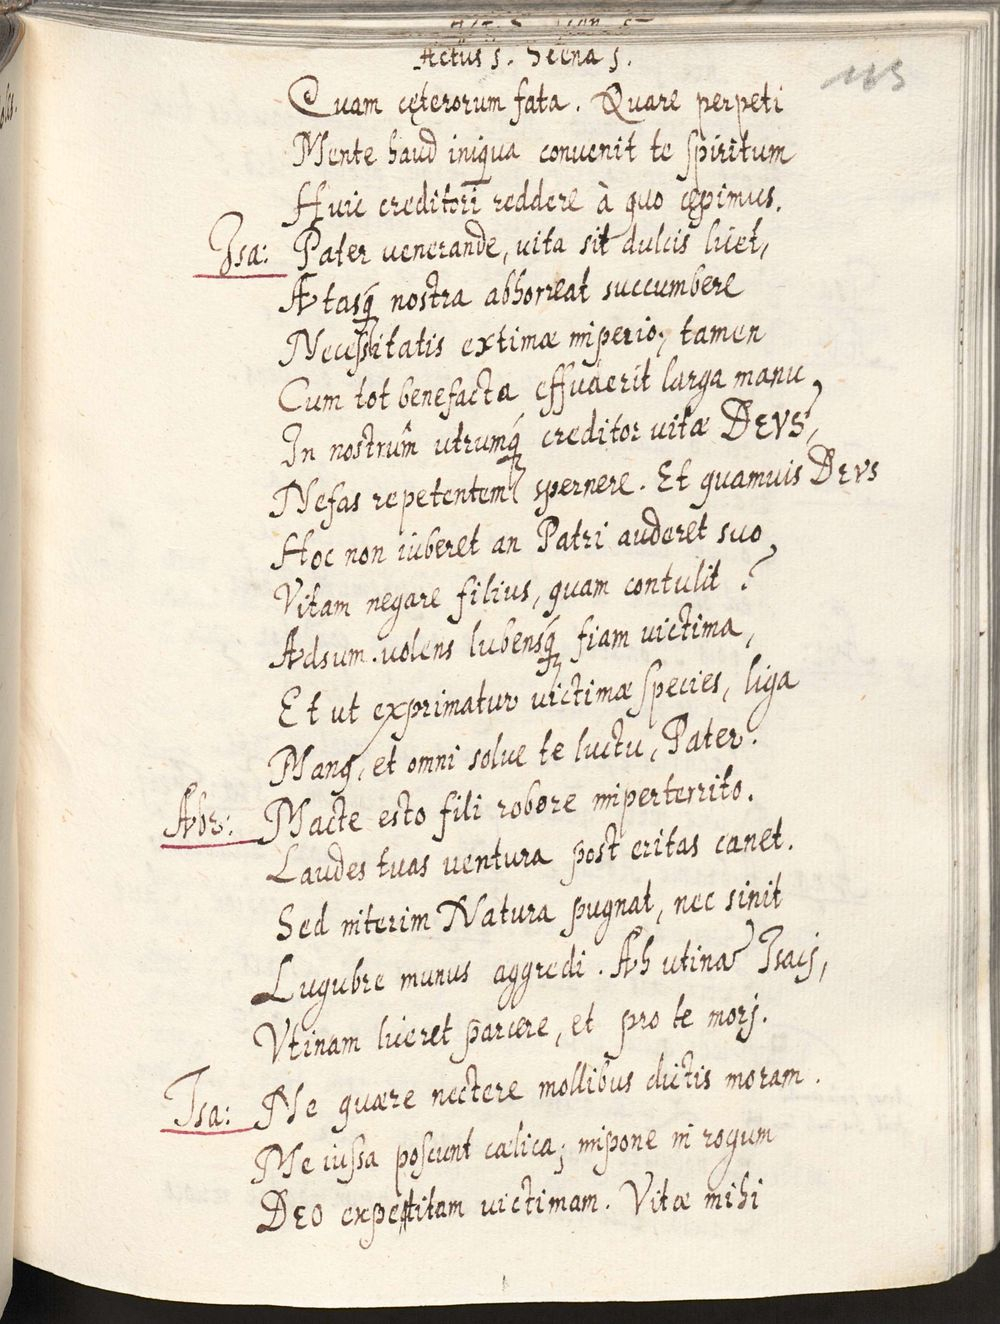 Actus 5. Scena 5.
115
Quam cęterorum fata. Quare perpeti
Mente haud iniqua conuenit te spiritum
Huic creditori reddere à quo cępimus.
Isa: Pater venerande, vita sit dulcis licet,
Ætasq́ nostra abhorreat succumbere
Necessitatis extimæ imperio, tamen
Cum tot benefacta effuderit larga manu
In nostrum̂ utrumq́ creditor uitæ DEVS,
Nefas repetentem spernere. Et quamuis DEVS
Hoc non iuberet an Patri auderet suo
Vitam negare filius, quam contulit?
Adsum. uolens lubensq́ fiam uictima,
Et ut exprimatur uictimæ species, liga
Mang, et omni solue te luctu, Pater.
Abr: Macte esto fili robore imperterrito.
Laudes tuas uentura post eritas canet.
Sed interim Natura pugnat, nec sinit
Lugubre munus aggredi. Ah utinã Isacj,
Vtinam liceret parcere, et pro te morj.
Isa: Ne quære nectere mollibus dictis moram.
Me iussa poscunt cælica; impone in rogum
DEO expetitam uictimam. Vitæ mihi